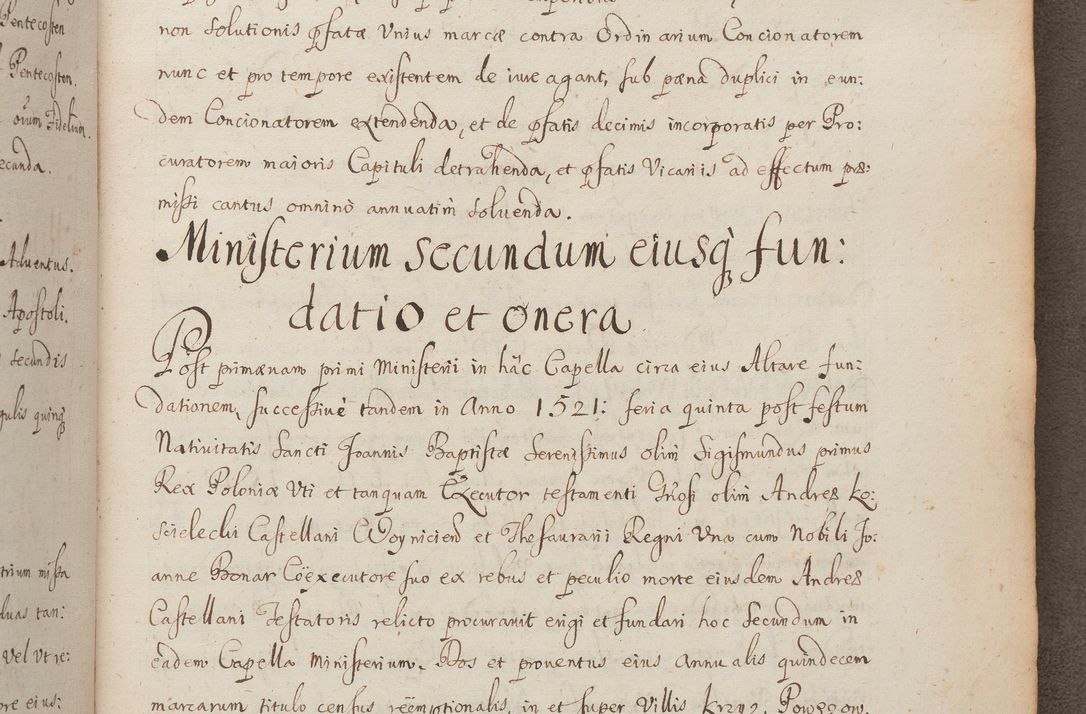 Pentecosten
Pentecosten.
ouum Fidelium.
ecunda.
Aduentus.
Apostoli.
secundis
gulis quinq
trium missa
duas tan:
vel vt re:
ore eius:
non solutionis pfatæ Vnius marcæ contra Ordinarium Concionatorem
nunc et pro tempore existentem de iure agant, sub pæna duplici in eun:
dem Concionatorem extendenda, et de pfatis decimis incorporatis per Pro:
curatorem maioris Capituli detrahenda, et pfatis Vicariis ad effectum præ:
missi cantus omninò annuatim soluenda.
Ministerium secundum eiusq fun:
datio et onera
Post primænam primi Ministerii in hâc Capella circa eius Altare fun:
dationem, successiuè tandem in Anno 1521: feria quinta post festum
Natiuitatis Sancti Joannis Baptistæ Serenissimus olim Sigismundus primus
Rex Poloniæ Vti et tanquam Executor testamenti Gnosi olim Andreæ Ko:
scieleckii Castellani Woynicien et Thesaurarii Regni Vna cum Nobili Jo:
anne Bonar Cöexecutore suo ex rebus et peculio morte eiusdem Andreæ
Castellani Testatoris relicto procurauit erigi et fundari hoc Secundum in
eadem Capella Ministerium. Dos et prouentus eius annualis quindecem
marcarum titulo census reëmptionalis, in et super Villis Krzyz, Powszow,